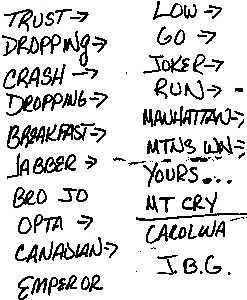 TRUST →
DROPPING →
CRASH →
DROPPING →
BREAKFAST →
JABBER →
BRO JO
OPTA →
CANADIAN →
EMPEROR
LOW →
GO →
JOKER →
RUN →
MANHATTAN →
MTNS WN →
YOURS...
MT CRY
CAROLINA
J.B.G.